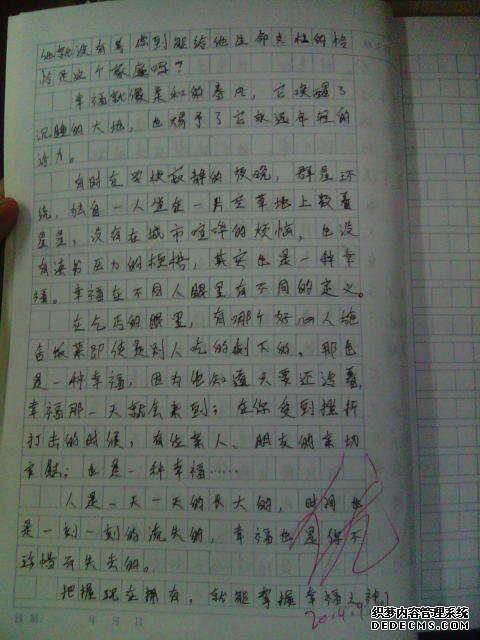 他就没有看到能给他生命支柱的恰
恰是这个家庭吗？
幸福就像柔和的春风，它唤醒了
沉睡的大地，也赐予了它永远年轻的
活力。
有时在安快寂静的夜晚，群星环
绕，独自一人坐在一片空草地上数着
星星，没有在城市喧哗的烦恼，也没
有读书压力的梗梏，其实也是一种幸
福。幸福在不同人眼里有不同的定义。
在乞丐的眼里，有哪个好心人施
舍饭菜即使是别人吃的剩下的，那也
是一种幸福，因为他知道只要还活着，
幸福那一天就会来到；在你受到挫折
打击的时候，有位亲人、朋友的亲切
安慰；也是一种幸福……
人是一天一天的长大的，时间也
是一刻一刻的流失的，幸福也是你不
珍惜而失去的。
把握现在拥有，就能掌握幸福之钥！
日期： 年 月 日
织梦内容管理系统
DEDECMS.COM